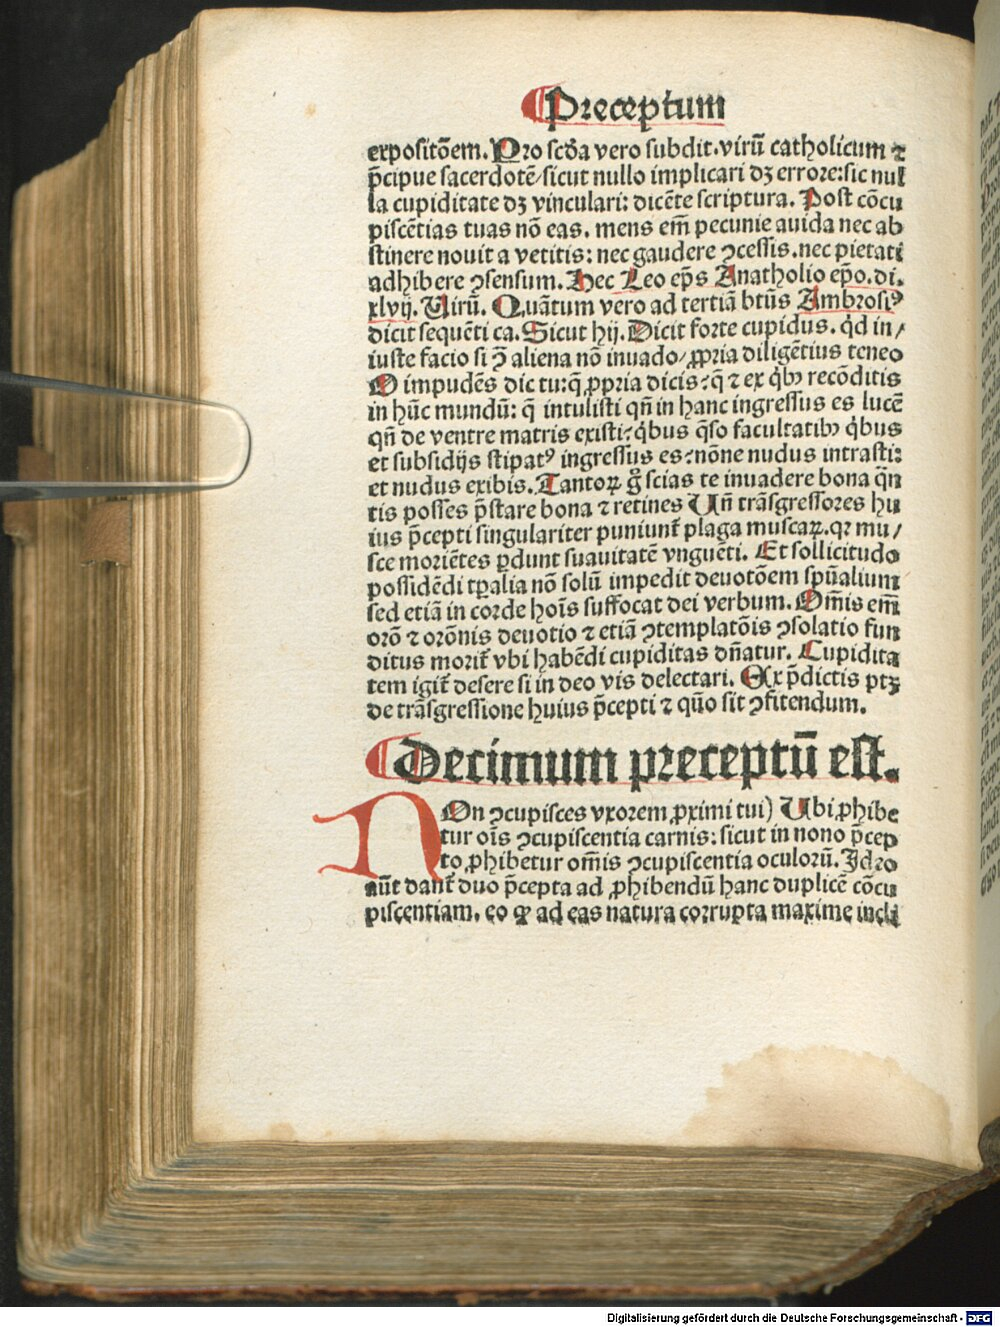 Preceptum
expositōem. Pro scđa vero subdit. virū catholicum ⁊
p̄cipue sacerdotē/sicut nullo implicari dꝫ errore: sic nul
la cupiditate dꝫ vinculari: dicēte scriptura. Post cōcu
piscētias tuas nō eas. mens em̄ pecunie auida nec ab
stinere nouit a vetitis: nec gaudere ꝯcessis. nec pietati
adhibere ꝯsensum. Hec Leo ep̄s Anatholio ep̄o. di.
xlvij. Virū. Quātum vero ad tertiā btūs Ambrosiꝰ
dicit sequēti ca. Sicut hij. Dicit forte cupidus. qd̓ in/
iuste facio si ꝙ̄ aliena nō inuado/ꝓpria diligētius teneo
O impudēs dic tu: q̄ ꝓpria dicis? q̄ ⁊ ex qͥbꝫ recōditis
in hūc mundū: q̄ intulisti qn̄ in hanc ingressus es lucē
qn̄ de ventre matris existi? qͥbus q̄so facultatibꝫ qͥbus
et subsidijs stipatꝰ ingressus es? nōne nudus intrasti:
et nudus exibis. Tantoꝝ g̊ scias te inuadere bona qͣn
tis posses p̄stare bona ⁊ retines Vn̄ trāsgressores hu
ius p̄cepti singulariter puniunt̄ plaga muscaꝝ. qꝛ mu/
sce moriētes ꝑdunt suauitatē vnguēti. Et sollicitudo
possidēdi tp̄alia nō solū impedit deuotōem spūalium
sed etiā in corde hoīs suffocat dei verbum. Om̄is em̄
orō ⁊ orōnis deuotio ⁊ etiā ꝯtemplatōis ꝯsolatio fun
ditus morit̄ vbi habēdi cupiditas dn̄atur. Cupidita
tem igit̄ desere si in deo vis delectari. Ex p̄dictis ptꝫ
de trāsgressione huius p̄cepti ⁊ quō sit ꝯfitendum.
Decimum preceptū est.
NOn ꝯcupisces vxorem ꝓximi tui) Vbi ꝓhibe
tur oīs ꝯcupiscentia carnis: sicut in nono p̄cep
to ꝓhibetur om̄is ꝯcupiscentia oculorū. Ideo
aūt dant̄ duo p̄cepta ad ꝓhibendū hanc duplicē cōcu
piscentiam. eo ꝙ ad eas natura corrupta maxime incli
Digitalisierung gefördert durch die Deutsche Forschungsgemeinschaft - DFG